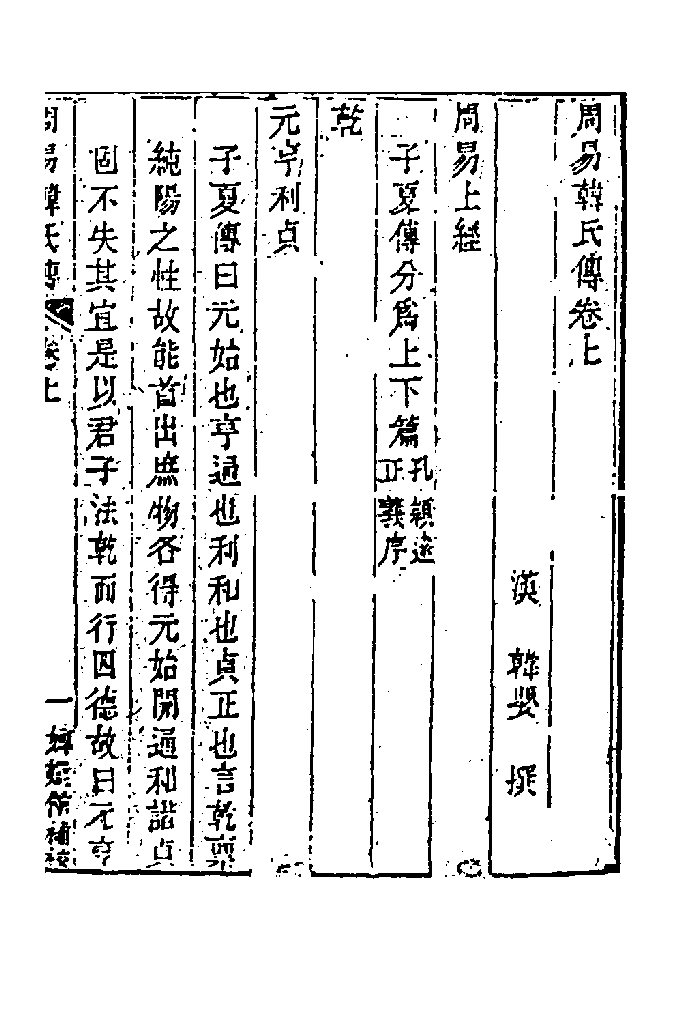 周易韓氏傳卷上
漢 韓嬰 撰
周易上經
子夏傳分爲上下篇孔穎達正義序
乾
元亨利貞
子夏傳曰元始也亨通也利和也貞正也言乾禀
純陽之性故能首出庶物各得元始開通利諧貞
固不失其宜是以君子法乾而行四德故曰元亨
周易韓氏傳 卷上 一 嫏嬛館補校